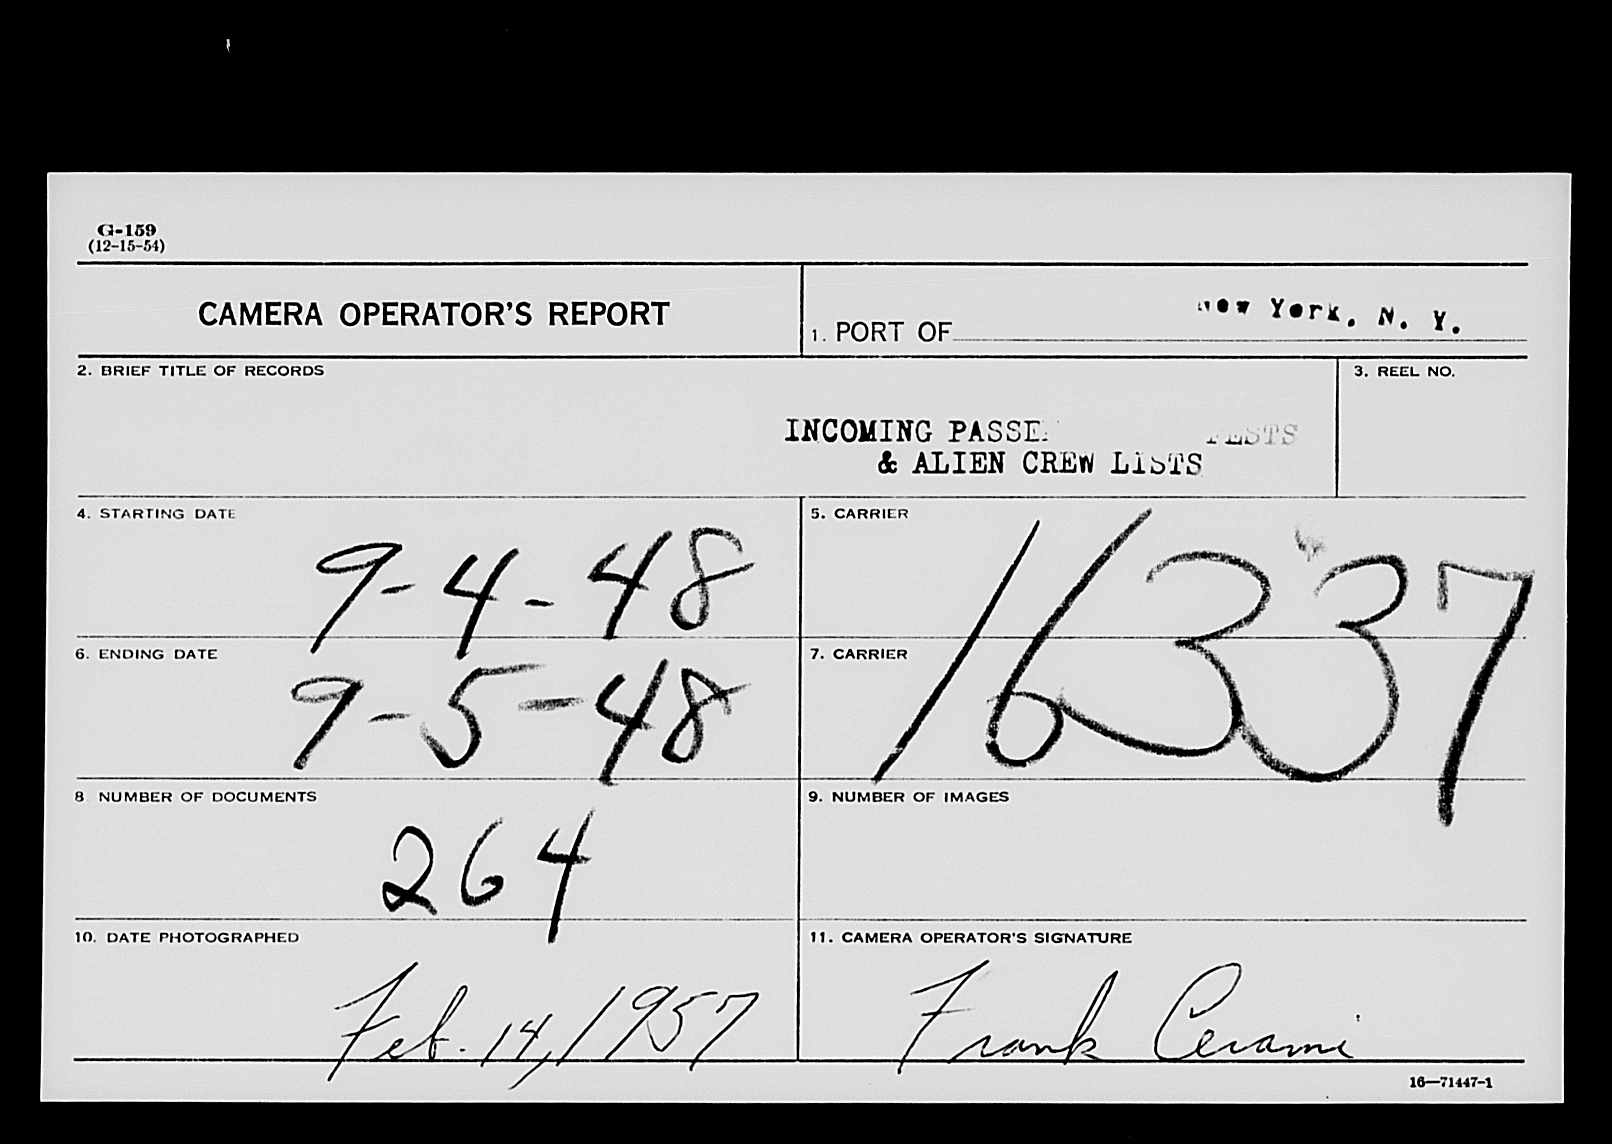 G-159
(12-15-54)
CAMERA OPERATOR'S REPORT
1. PORT OF New York, N. Y.
2. BRIEF TITLE OF RECORDS
3. REEL NO.
INCOMING
& ALIEN CREW LISTS
4. STARTING DATE
9-4-48
5. CARRIER
16337
6. ENDING DATE
9-5-48
7. CARRIER
8 NUMBER OF DOCUMENTS
264
9. NUMBER OF IMAGES
10. DATE PHOTOGRAPHED
Feb. 14, 1957
11. CAMERA OPERATOR'S SIGNATURE
Frank Cerami
16—71447-1